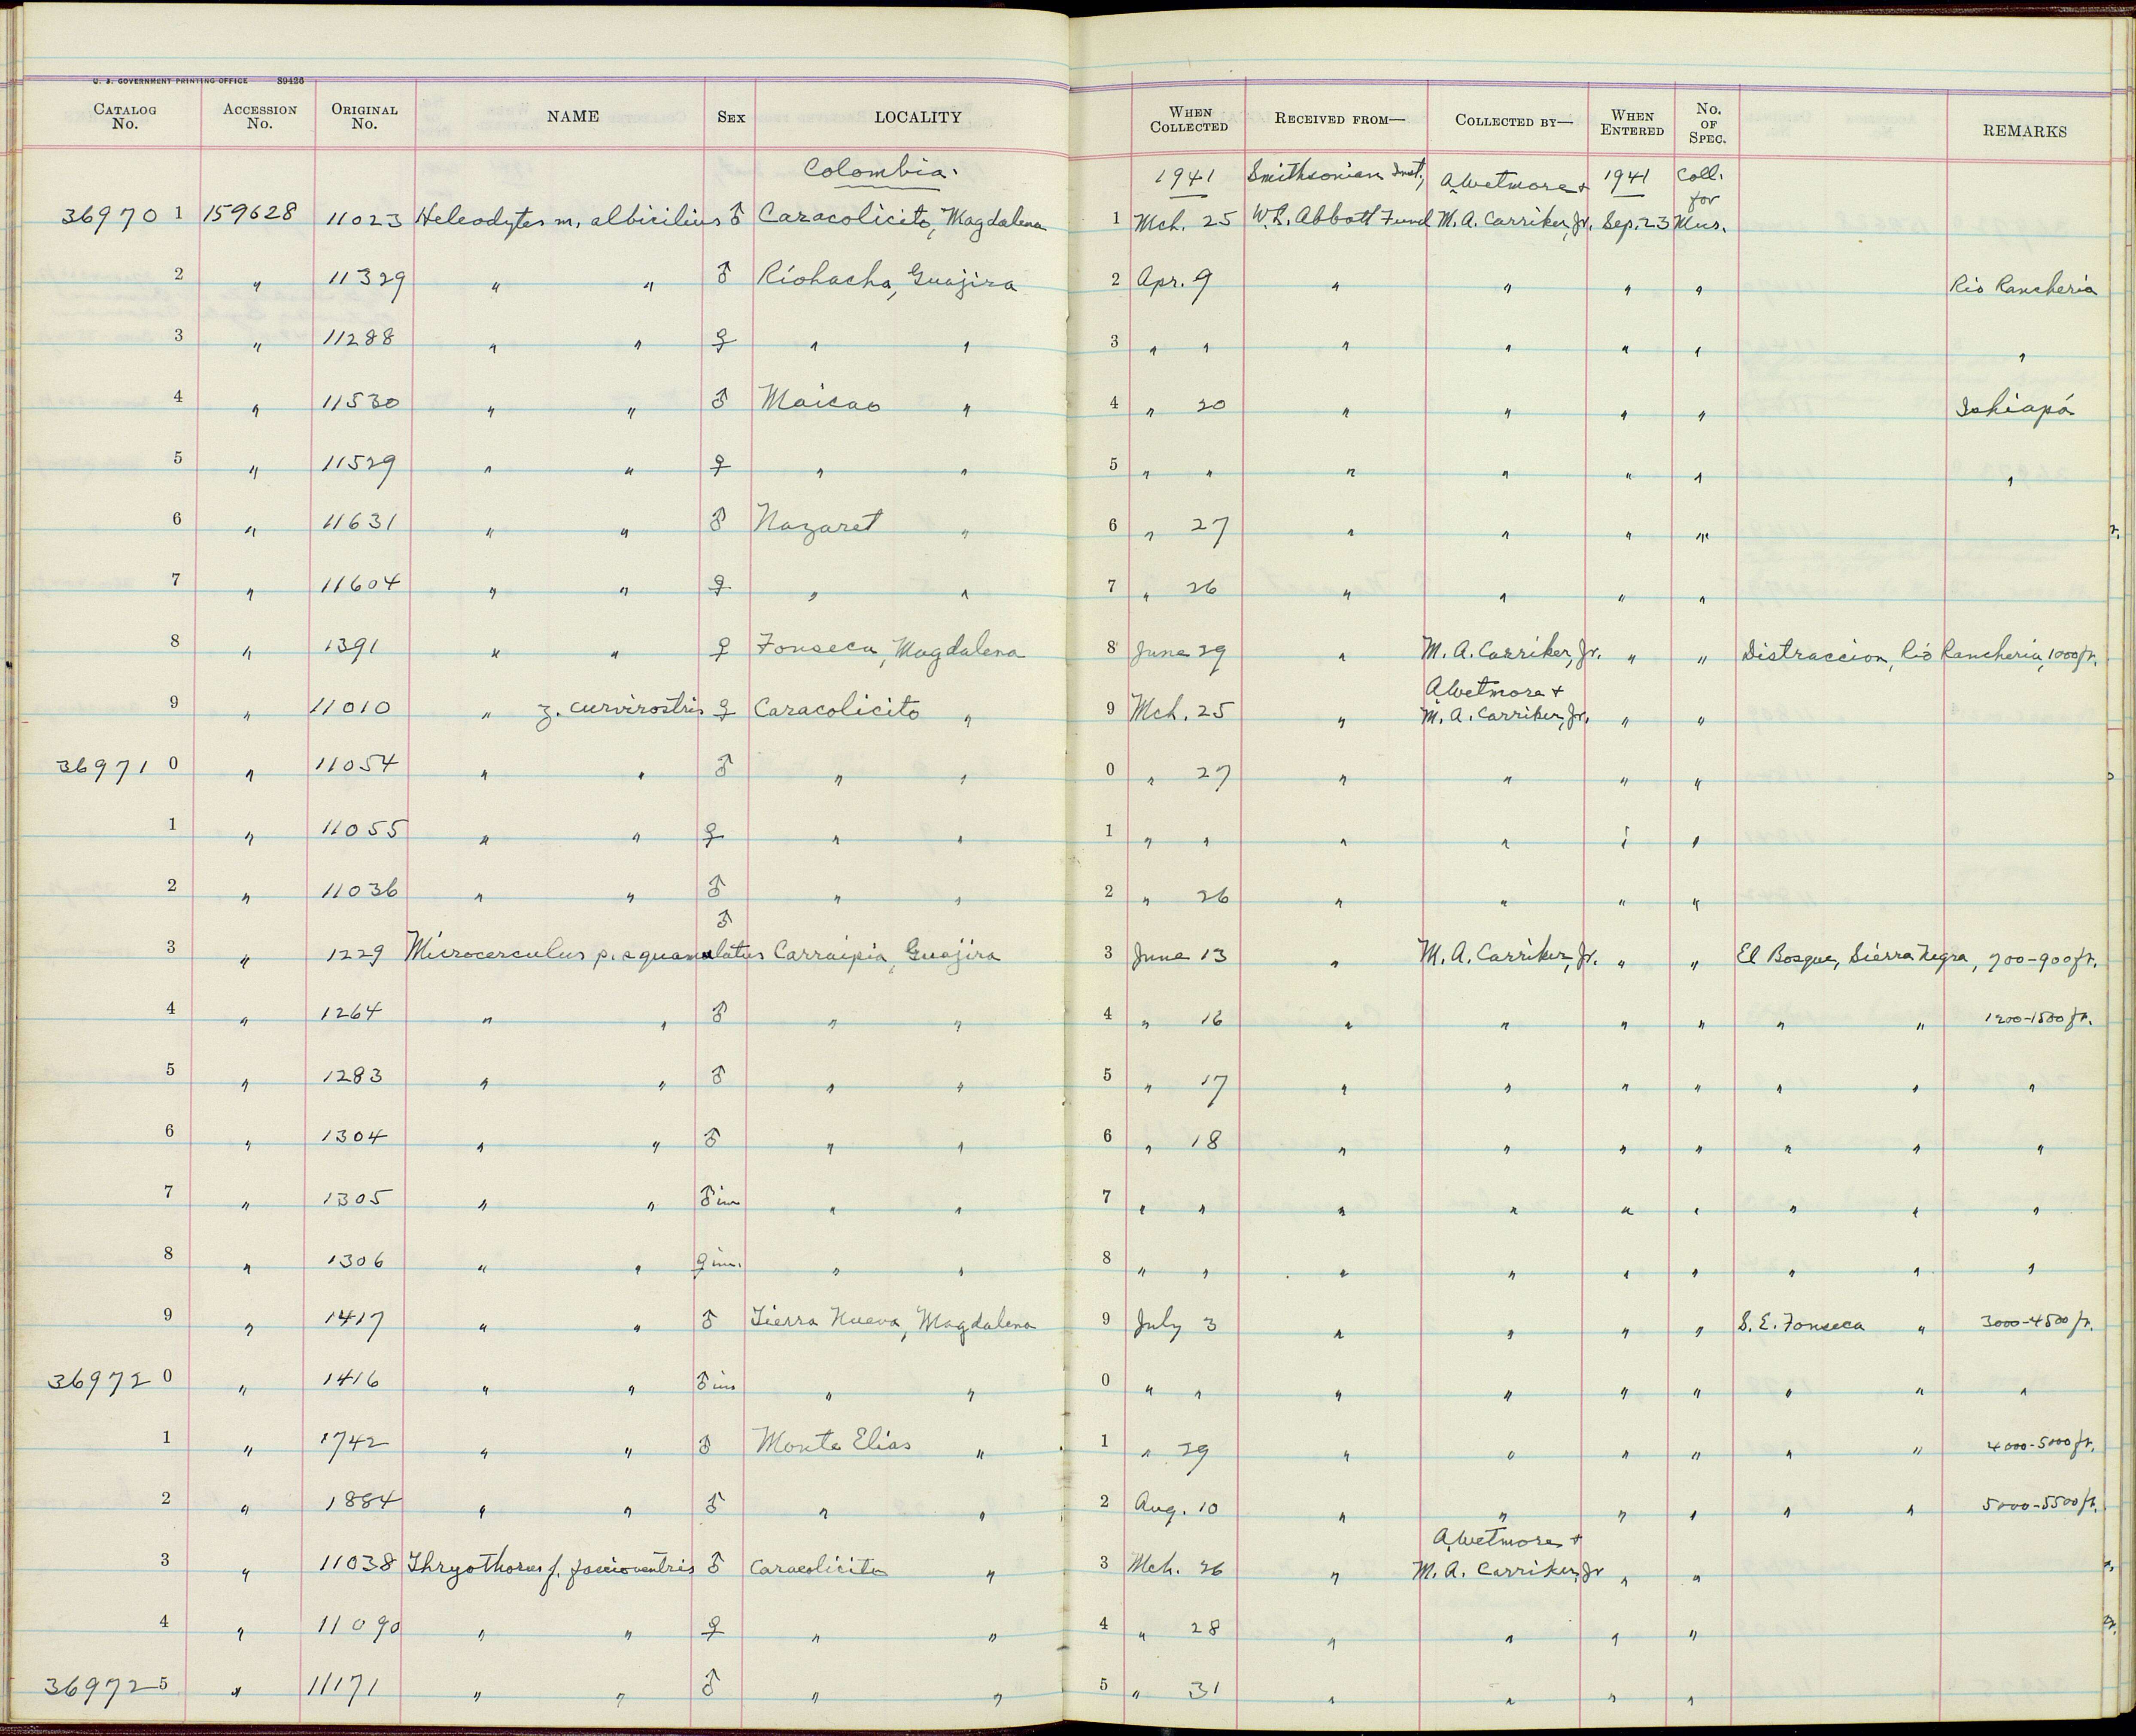 U. S. GOVERNMENT PRINTING OFFICE 89426
CATALOG No. ACCESSION No. ORIGINAL No. NAME SEX LOCALITY WHEN COLLECTED RECEIVED FROM— COLLECTED BY— WHEN ENTERED No. OF SPEC. REMARKS
Colombia. 1941 Smithsonian Inst., A Wetmore + 1941 Coll. for
36970 1 159628 11023 Heleodytes m. albicilius ♂ Caracolicito, Magdalena 1 Mch. 25 W. L. Abbott Fund M. A. Carriker, Jr. Sep. 23 Mus.
2 " 11329 " " ♂ Riohacha, Guajira 2 Apr. 9 " " " " Rio Rancheria
3 " 11288 " " ♀ " " 3 " " " " " " "
4 " 11530 " " ♂ Maicao " 4 " 20 " " " " Ishiapá
5 " 11529 " " ♀ " " 5 " " " " " " "
6 " 11631 " " ♂ Nazaret " 6 " 27 " " " "
7 " 11604 " " ♀ " " 7 " 26 " " " "
8 " 1391 " " ♀ Fonseca, Magdalena 8 June 29 " M. A. Carriker, Jr. " " Distraccion, Rio Rancheria, 1000 ft.
9 " 11010 " z. curvirostris ♀ Caracolicito " 9 Mch. 25 " A Wetmore + M. A. Carriker, Jr. " "
36971 0 " 11054 " " ♂ " " 0 " 27 " " " "
1 " 11055 " " ♀ " " 1 " " " " " "
2 " 11036 " " ♂ " " 2 " 26 " " " "
3 " 1229 Microcerculus p. squamulatus ♂ Carraipia, Guajira 3 June 13 " M. A. Carriker, Jr. " " El Bosque, Sierra Negra, 700-900 ft.
4 " 1264 " " ♂ " " 4 " 16 " " " " " " 1200-1500 ft.
5 " 1283 " " ♂ " " 5 " 17 " " " " " " "
6 " 1304 " " ♂ " " 6 " 18 " " " " " " "
7 " 1305 " " ♂ im " " 7 " " " " " " " " "
8 " 1306 " " ♀ im. " " 8 " " " " " " " " "
9 " 1417 " " ♂ Tierra Nueva, Magdalena 9 July 3 " " " " S. E. Fonseca " 3000-4500 ft.
36972 0 " 1416 " " ♂ im " " 0 " " " " " " " " "
1 " 1742 " " ♂ Monte Elias " 1 " 29 " " " " " " 4000-5000 ft.
2 " 1884 " " ♂ " " 2 Aug. 10 " " " " " " 5000-5500 ft.
3 " 11038 Thryothorus f. fascioventris ♂ Caracolicito " 3 Mch. 26 " A Wetmore + M. A. Carriker, Jr " "
4 " 11090 " " ♀ " " 4 " 28 " " " "
36972 5 " 11171 " " ♂ " " 5 " 31 " " " "